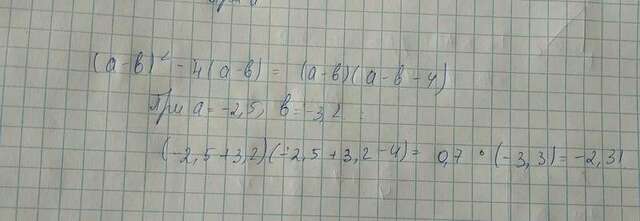 (а-в)² - 4(а-в) = (а-в)(а-в-4)
При а = -2,5, в = -3,2 :
(-2,5+3,2)(-2,5+3,2-4) = 0,7 • (-3,3) = -2,31